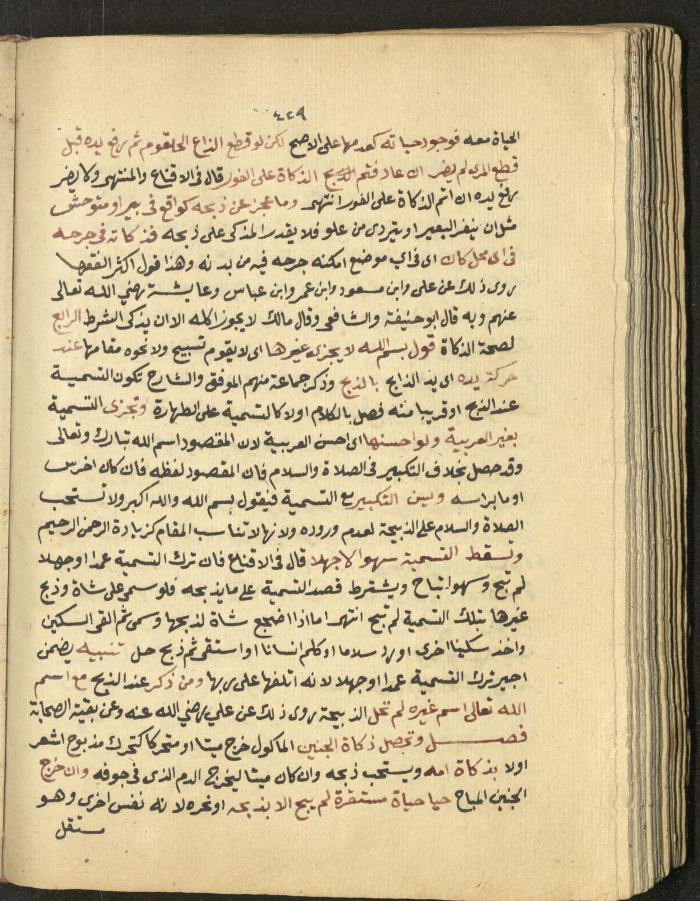 ٤٢٩
الحياة معه فوجود حياته كعدمها على الاصح لكن لو قطع الذابح الحلقوم ثم رفع يده قبل
قطع المرى لم يضر ان عاد فتمم الذكاة على الفور قال فى الاقناع والمنتهى ولا يضر
رفع يده ان اتم الذكاة على الفور انتهى وما عجز عن ذبحه كواقع فى بير او متوحش
مثل ان ينفر البعير او يتردى من علو فلا يقدر المذكى على ذبحه فذكاته فى جرحه
فى اى محل كان اى فى اي موضع امكنه جرحه فيه من بدنه وهذا قول اكثر الفقها
روى ذلك عن على وابن مسعود وابن عمر وابن عباس وعايشة رضي الله تعالى
عنهم وبه قال ابو حنيفة والشافعى وقال مالك لا يجوز اكله الا ان يذكى الشرط الرابع
لصحة الذكاة قول بسم الله لا يجزى غيرها اى لا يقوم تسبيح ولا نحوه مقامها عند
حركة يده اى يد الذابح بالذبح وذكر جماعة منهم الموفق والشارح تكون التسمية
عند الذبح او قريبا منه فصل بالكلام اولا كالتسمية على الطهارة وتجزى التسمية
بغير العربية ولو احسنها اى احسن العربية لان المقصود اسم الله تبارك وتعالى
وقد حصل بخلاف التكبير فى الصلاة والسلام فان المقصود لفظه فان كان اخرس
اوما براسه وسن التكبير مع التسمية فيقول بسم الله والله اكبر ولا تستحب
الصلاة والسلام على الذبيحة لعدم وروده ولانها لا تناسب المقام كزيادة الرحمن الرحيم
وتسقط التسمية سهوا لا جهلا قال فى الاقناع فان ترك التسمية عمدا او جهلا
لم تبح وسهوا تباح ويشترط قصد التسمية على ما يذبحه فلو سمى على شاة وذبح
غيرها بتلك التسمية لم تبح انتهى اما اذا اضجع شاة لذبحها وسمى ثم القى السكين
واخذ سكينا اخرى او رد سلاما او كلم انسانا او استقى ثم ذبح حل تنبيه يضمن
اجير ترك التسمية عمدا او جهلا لانه اتلفها على ربها ومن ذكر عند الذبح مع اسم
الله تعالى اسم غيره لم تحل الذبيحة روى ذلك عن على رضي الله عنه وعن بقية الصحابة
فصل وتحصل ذكاة الجنين الماكول خرج ميتا او متحركا كتحرك مذبوح اشعر
اولا بذكاة امه ويستحب ذبحه وان كان ميتا ليخرج الدم الذى فى جوفه وان خرج
الجنين المباح حيا حياة مستقرة لم يبح الا بذبحه او نحره لانه نفس اخرى وهو
مستقل